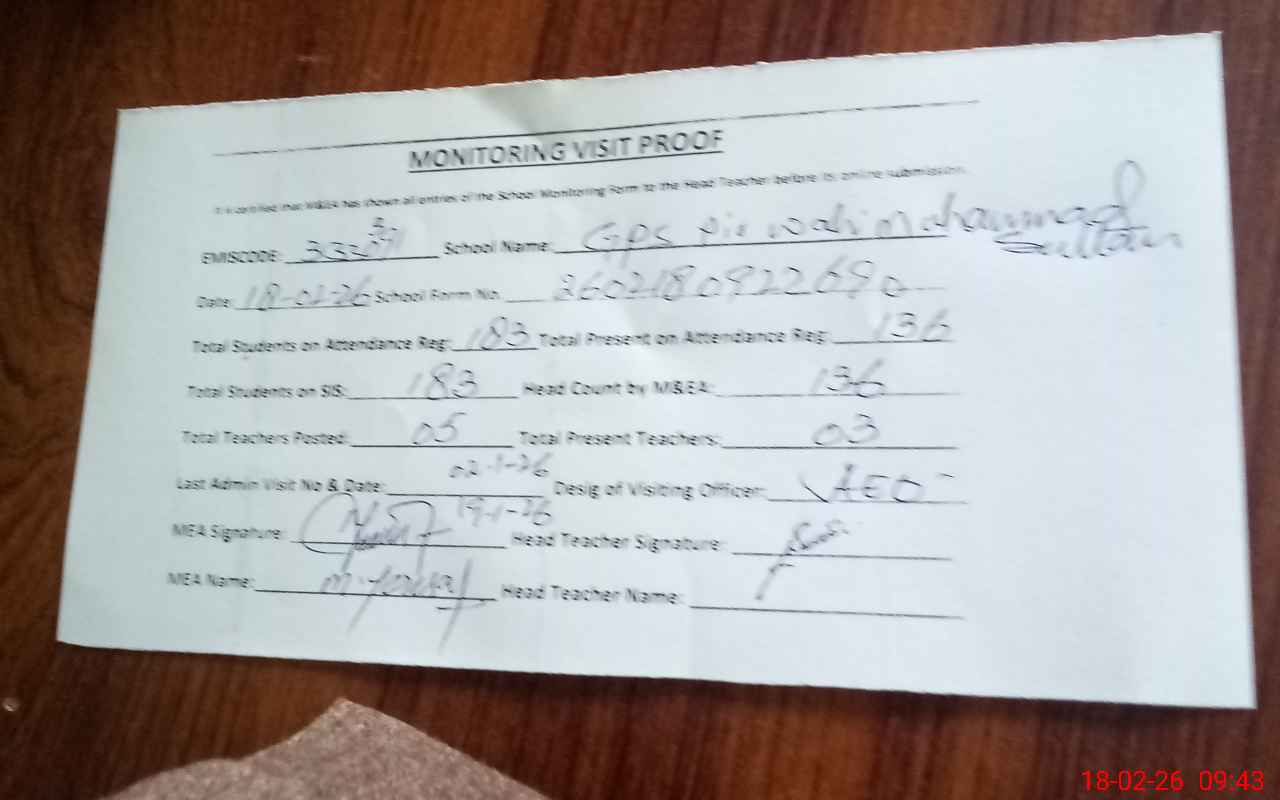 MONITORING VISIT PROOF
It is certified that M&EA has shown all entries of the School Monitoring Form to the Head Teacher before its online submission.
EMISCODE: School Name: GPS Pir wali Mohammad Sultan
Date: 18-02-26 School Form No. 260218092269 0
Total Students on Attendance Reg: 183 Total Present on Attendance Reg: 136
Total Students on SIS: 183 Head Count by M&EA: 136
Total Teachers Posted: 05 Total Present Teachers: 03
Last Admin Visit No & Date: 02-1-26 Desig of Visiting Officer: AEO
19-1-26
MEA Signature: Head Teacher Signature:
MEA Name: Head Teacher Name:
18-02-26 09:43